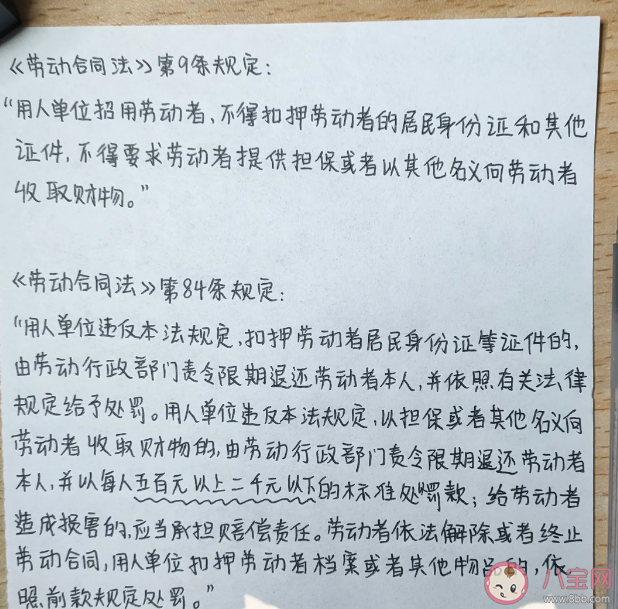 《劳动合同法》第9条规定：
“用人单位招用劳动者、不得扣押劳动者的居民身份证和其他
证件，不得要求劳动者提供担保或者以其他名义向劳动者
收取财物。”
《劳动合同法》第84条规定：
“用人单位违反本法规定，扣押劳动者居民身份证等证件的，
由劳动行政部门责令限期退还劳动者本人，并依照有关法律
规定给予处罚。用人单位违反本法规定，以担保或者其他名义向
劳动者收取财物的，由劳动行政部门责令限期退还劳动者
本人，并以每人五百元以上二千元以下的标准处罚款；给劳动者
造成损害的，应当承担赔偿责任。劳动者依法解除或者终止
劳动合同，用人单位扣押劳动者档案或者其他物品的，依
照前款规定处罚。”
八宝网
www.8bb.com